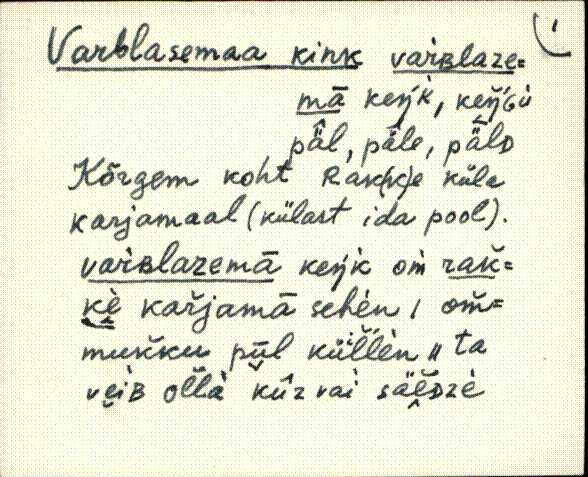 1
Varblasemaa kink vaiʙlaze=
mā keŋ́k̀, keŋ̆́ɢù
päl, päle, pälᴅ
Kõrgem koht Rak(k)e küla
karjamaal (külast ida pool).
vaiʙlazemā keŋ́k om̀ rak̆=
kè kařjamā sehèn / om̆=
mukku pūl küĭllèn // ta
veìʙ ollà kūz vai säeᴅzè